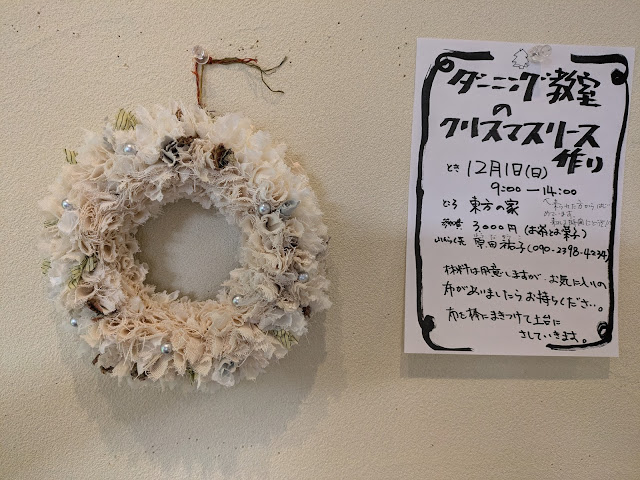 ダーニング教室
の
クリスマスリース
作り
とき 12月1日(日)
9:00—14:00
ところ 東方の家
参加費 3,000円(お茶とお菓子)
原田祐子(090-2398-4234)
材料は用意しますが、お気に入りの
布がありましたらお持ちください。
布を棒にまきつけて土台に
さしていきます。